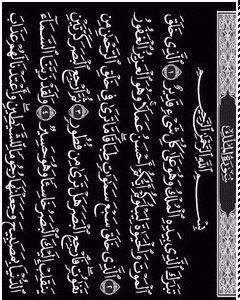 سُورَةُ المُلْكِ
بِسْمِ ٱللَّهِ ٱلرَّحْمَٰنِ ٱلرَّحِيمِ
تَبَٰرَكَ ٱلَّذِي بِيَدِهِ ٱلْمُلْكُ وَهُوَ عَلَىٰ كُلِّ شَيْءٍ قَدِيرٌ ١ ٱلَّذِي خَلَقَ
ٱلْمَوْتَ وَٱلْحَيَوٰةَ لِيَبْلُوَكُمْ أَيُّكُمْ أَحْسَنُ عَمَلًا وَهُوَ ٱلْعَزِيزُ ٱلْغَفُورُ
٢ ٱلَّذِي خَلَقَ سَبْعَ سَمَٰوَٰتٍ طِبَاقًا مَّا تَرَىٰ فِي خَلْقِ ٱلرَّحْمَٰنِ مِن
تَفَٰوُتٍ فَٱرْجِعِ ٱلْبَصَرَ هَلْ تَرَىٰ مِن فُطُورٍ ٣ ثُمَّ ٱرْجِعِ ٱلْبَصَرَ كَرَّتَيْنِ
يَنقَلِبْ إِلَيْكَ ٱلْبَصَرُ خَاسِئًا وَهُوَ حَسِيرٌ ٤ وَلَقَدْ زَيَّنَّا ٱلسَّمَآءَ
ٱلدُّنْيَا بِمَصَٰبِيحَ وَجَعَلْنَٰهَا رُجُومًا لِّلشَّيَٰطِينِ وَأَعْتَدْنَا لَهُمْ عَذَابَ